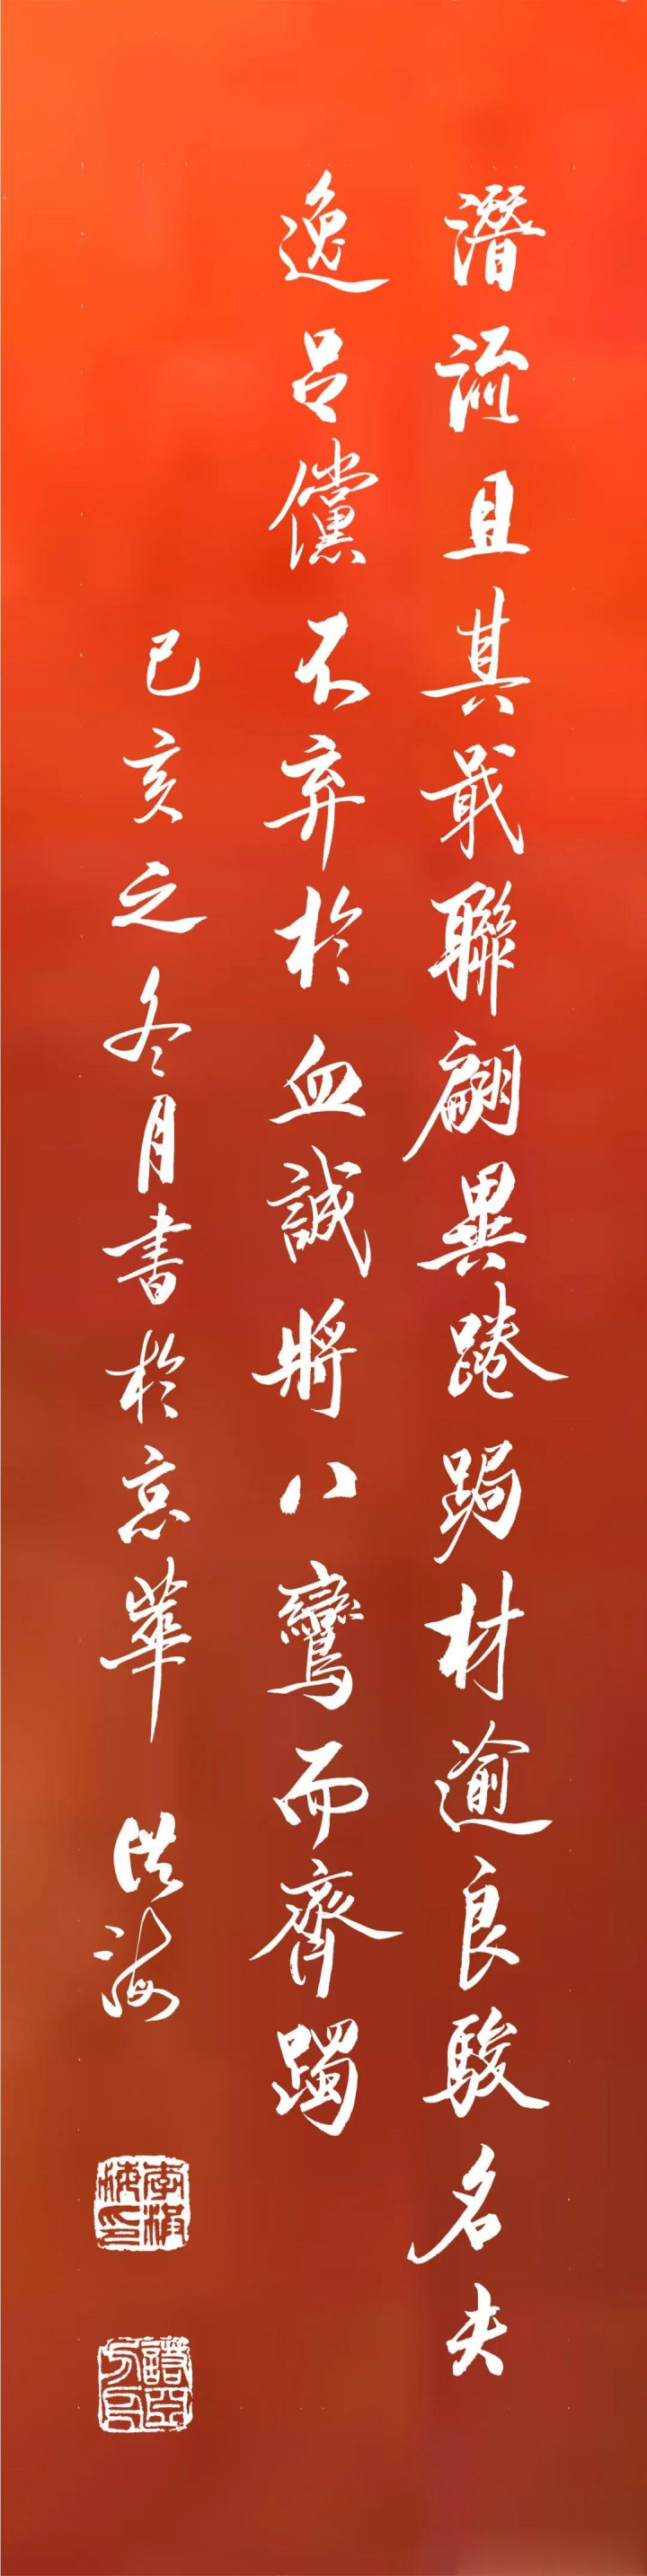 潛泒且其戢聯翩異踡跼材逾良駿名夫
逸呂儻不弃於血誠將八鸞而齊躅
己亥之冬月書於京華 洪海